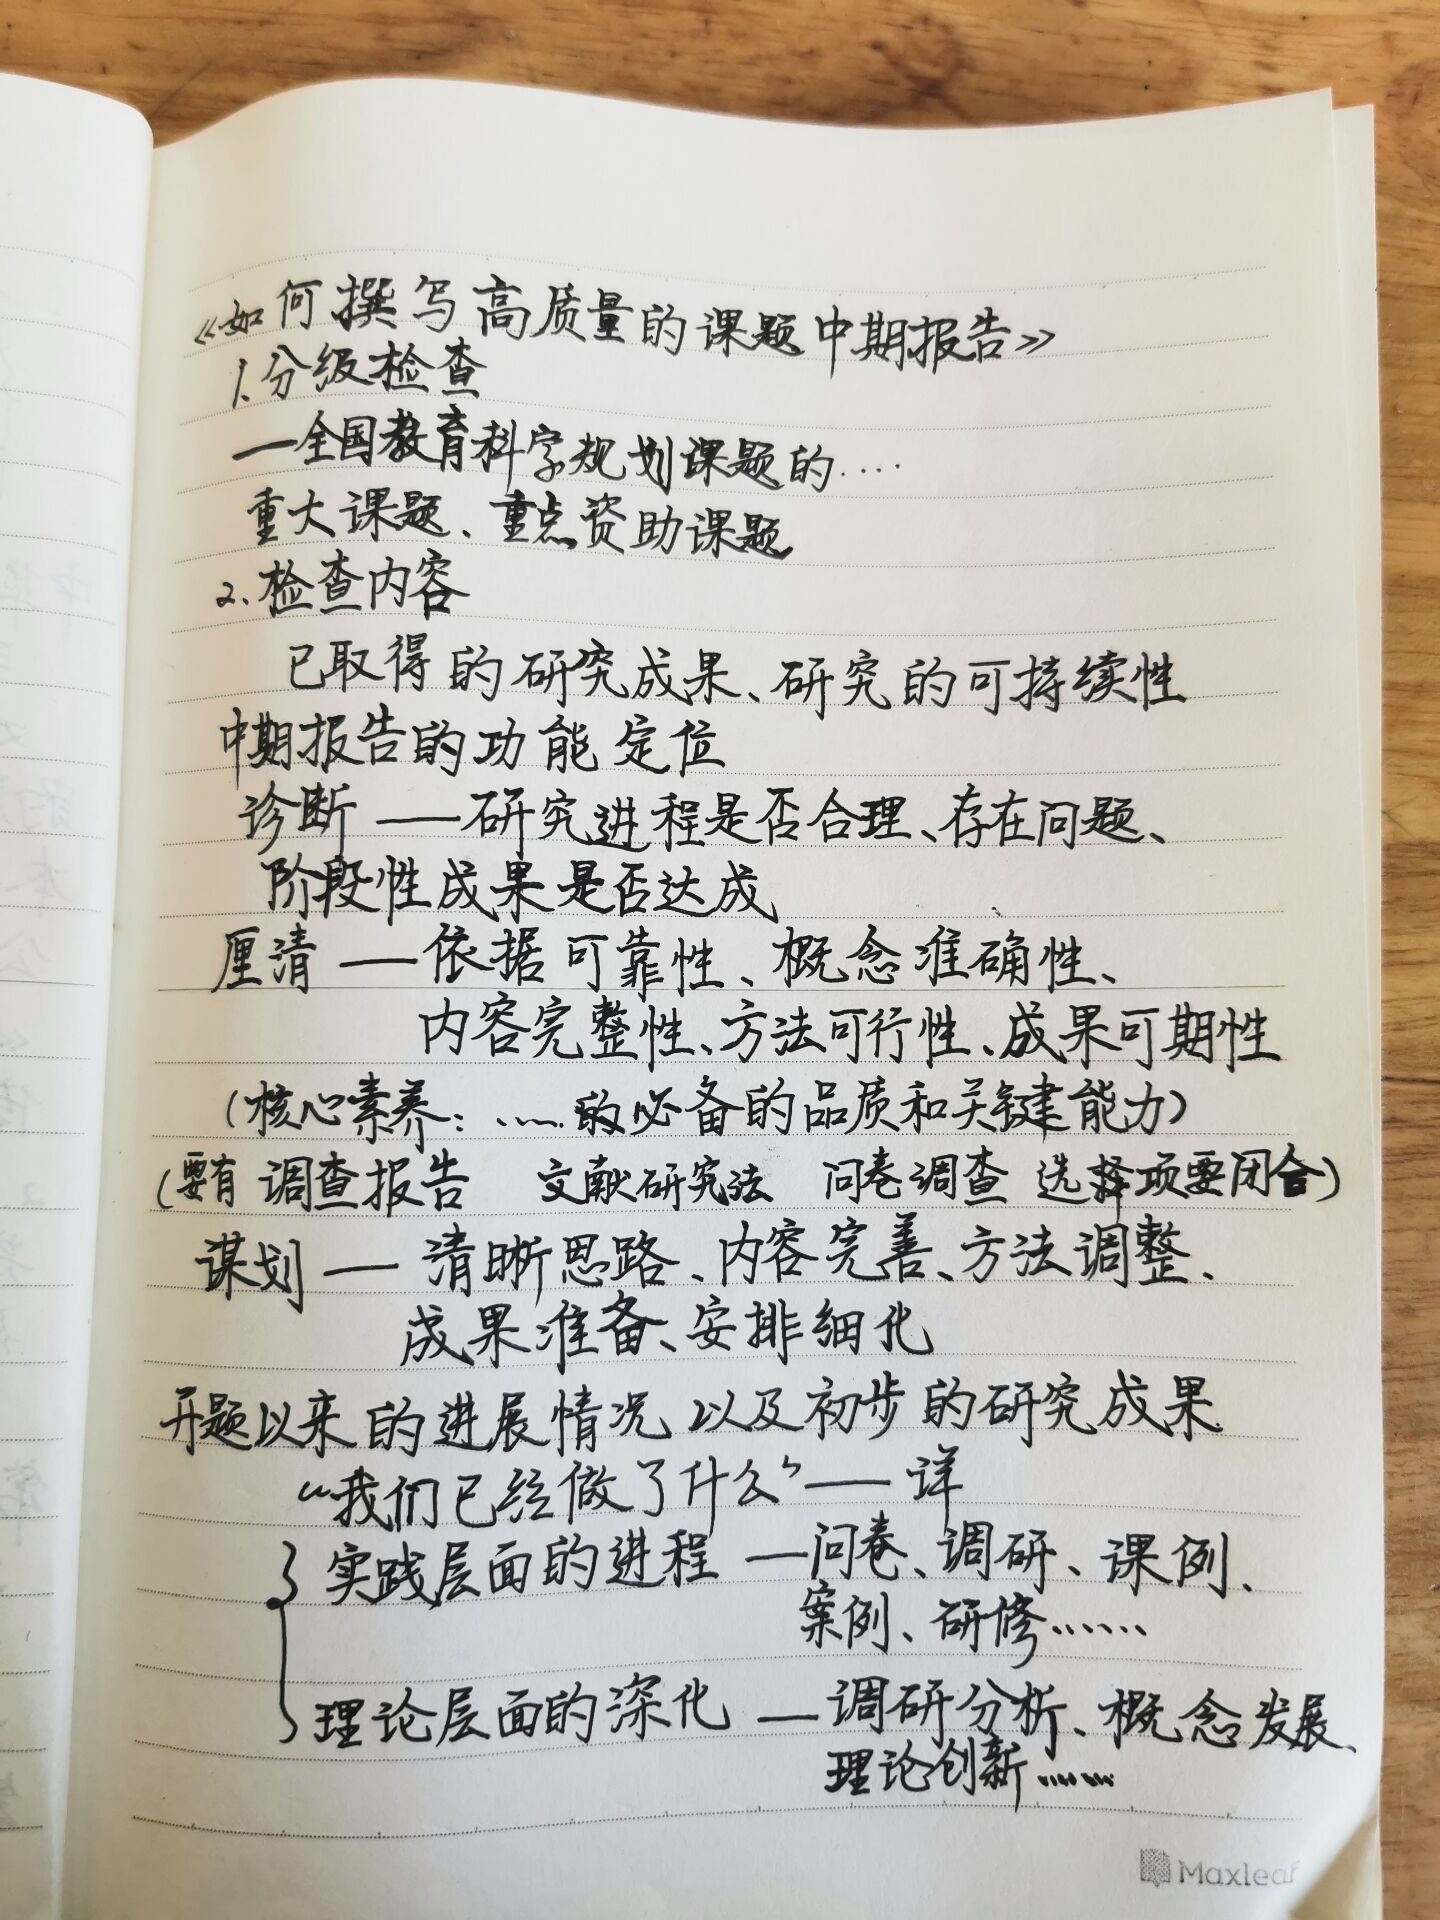 《如何撰写高质量的课题中期报告》
1.分级检查
—全国教育科学规划课题的....
重大课题、重点资助课题
2.检查内容
已取得的研究成果、研究的可持续性
中期报告的功能定位
诊断——研究进程是否合理、存在问题、
阶段性成果是否达成
厘清——依据可靠性、概念准确性、
内容完整性、方法可行性、成果可期性
(核心素养:……的必备的品质和关键能力)
(要有 调查报告 文献研究法 问卷调查 选择项要闭合)
谋划——清晰思路、内容完善、方法调整、
成果准备、安排细化
开题以来的进展情况以及初步的研究成果
“我们已经做了什么”——详
实践层面的进程—问卷、调研、课例、
案例、研修……
理论层面的深化—调研分析、概念发展、
理论创新……
Maxleaf